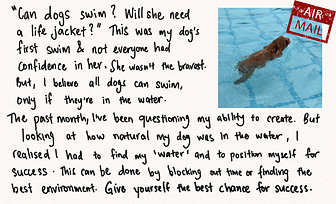 "Can dogs swim? Will she need
a life jacket?" This was my dog's
first swim & not everyone had
confidence in her. She wasn't the bravest.
But, I believe all dogs can swim,
only if they're in the water.
The past month, I've been questioning my ability to create. But
looking at how natural my dog was in the water, I
realised I had to find my 'water' and to position myself for
success. This can be done by blocking out time or finding the
best environment. Give yourself the best chance for success.
AIR
MAIL